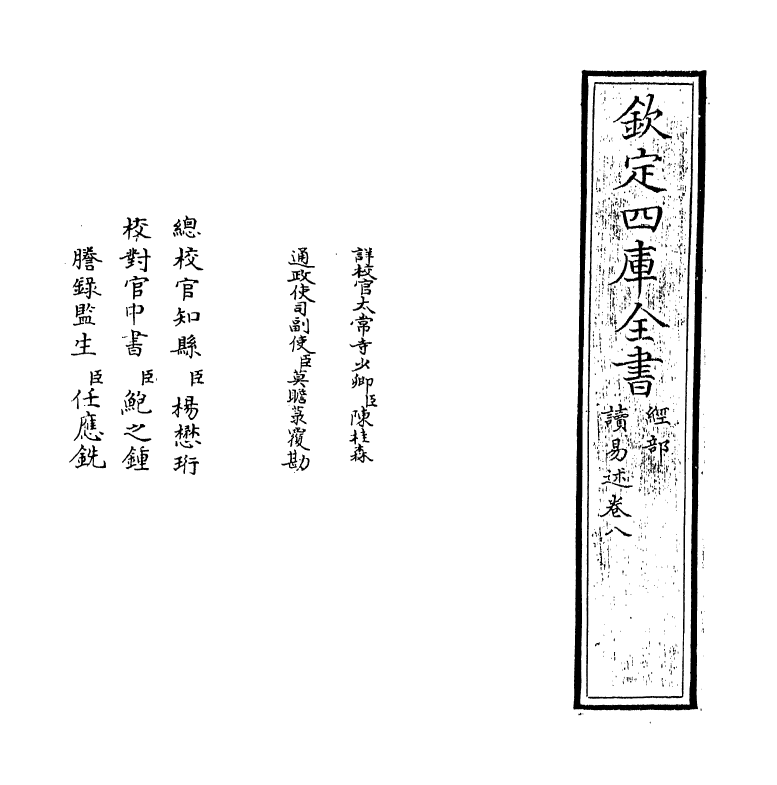 欽定四庫全書
經部
讀易述卷八
詳校官太常寺少卿臣陳桂森
通政使司副使臣莫瞻菉覆勘
總校官知縣臣楊懋珩
校對官中書臣鮑之鍾
謄錄監生臣任應銑